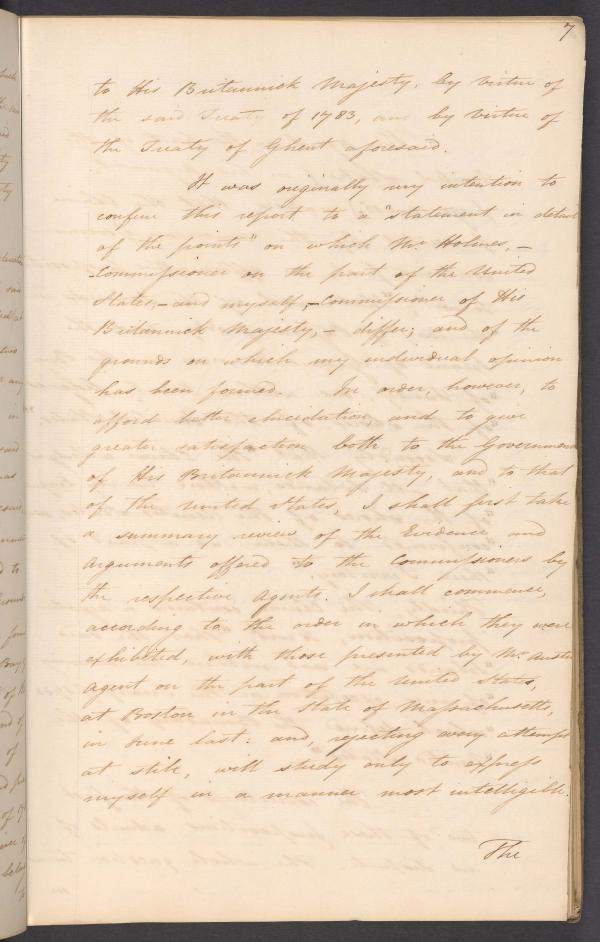 7
to His Britannick Majesty, by virtue of
the said Treaty of 1783, and by virtue of
the Treaty of Ghent aforesaid.
It was originally my intention to
confine this report to a "statement in detail
of the points" on which Mr. Holmes, –
Commissioner on the part of the United
States, – and myself, – Commissioner of His
Britannick Majesty, – differ; and of the
grounds on which my individual opinion
has been formed. In order, however, to
afford better elucidation, and to give
greater satisfaction both to the Government
of His Britannick Majesty, and to that
of the United States, I shall first take
a summary review of the Evidence and
Arguments offered to the Commissioners by
the respective Agents. I shall commence,
according to the order in which they were
exhibited, with those presented by Mr. Austin
Agent on the part of the United States,
at Boston in the State of Massachusetts,
in June last: and, rejecting every attempt
at stile, will study only to express
myself in a manner most intelligible.
The